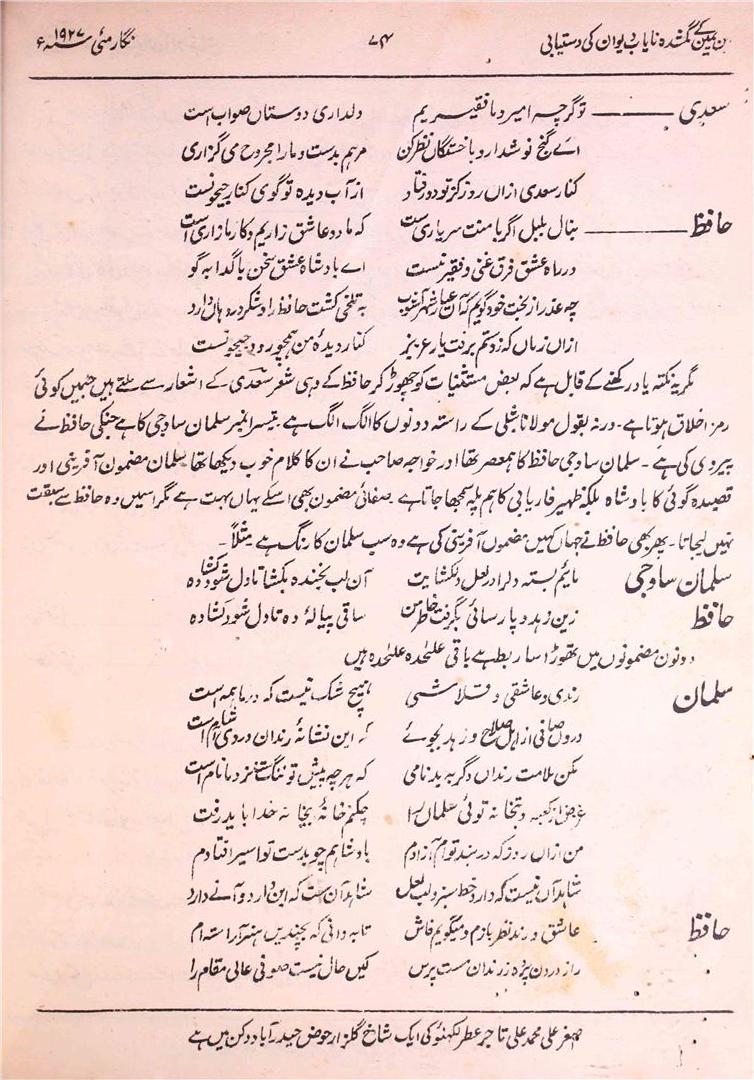 ابن یمین کے گمشدہ نایاب دیوان کی دستیابی ۷۴ نگار مئی سنہ ۱۹۲۷ء
سعدی — تو گرچہ امیر و ما فقیریم دلداری دوستاں صواب است
اے گنج نوشدارو با خستگاں نظر کن مرہم بدست و مارا مجروح می گزاری
کنار سعدی ازاں روز کز تو دور فتاد از آب دیدہ تو گوی کنار جیحونست
حافظ — بنال بلبل اگر با منت سر یاری ست کہ ما دو عاشق زاریم و کار ما زاری است
در راہ عشق فرق غنی و فقیر نیست اے بادشاہ عشق سخن با گدا بہ گو
چہ عذر از بخت خود گویم کہ آں عیار شہر آشوب بہ تلخی کشت حافظ را و شکر در دہاں دارد
ازاں زماں کہ ز دستم برفت یار عزیز کنار دیدۂ من ہمچو رود جیحونست
مگر یہ نکتہ یاد رکھنے کے قابل ہے کہ بعض مستثنیات کو چھوڑ کر حافظ کے وہی شعر سعدی کے اشعار سے ملتے ہیں جنہیں کوئی
رمز اخلاق ہوتا ہے۔ ورنہ بقول مولانا شبلی کے راستہ دونوں کا الگ الگ ہے۔ تیسرا نمبر سلمان ساوجی کا ہے جنکی حافظ نے
پیروی کی ہے۔ سلمان ساوجی حافظ کا ہمعصر تھا اور خواجہ صاحب نے ان کا کلام خوب دیکھا تھا سلمان مضمون آفرینی اور
قصیدہ گوئی کا بادشاہ بلکہ ظہیر فاریابی کا ہم پلہ سمجھا جاتا ہے۔ صفائی مضمون بھی اسکے یہاں بہت ہے مگر اسمیں وہ حافظ سے سبقت
نہیں لیجاتا۔ پھر بھی حافظ نے جہاں کہیں مضموں آفرینی کی ہے وہ سب سلمان کا رنگ ہے مثلاً۔
سلمان ساوجی مایٔم بستہ دلرا در لعل دلکشایت آں لب بخندہ بکشا تا دل شود کشادہ
حافظ زین زہد و پارسائی بگرفت خاطر من ساقی پیالۂ دہ تا دل شود کشادہ
دونوں مضمونوں میں تھوڑا سا ربط ہے باقی علٰحدہ علٰحدہ ہیں
سلمان رندی و عاشقی و قلاشی ہیچ شک نیست کہ در ما ہمہ است
درون صافی از اہل صلاح و زہد بجوئے کہ این نشانۂ رندان دردی آشام است
مکن ملامت رنداں دگر بہ بدنامی کہ ہرچہ پیش تو ننگست نزد ما نام است
غرض از کعبہ و بتخانہ توئی سلماں را چکنم خانہ بخانہ خدا باید رفت
من ازاں روز کہ در بند توام آزادم بادشاہم چو بدست تو اسیر افتادم
شاہد آں نیست کہ دارد خط سبز و لب لعل شاہد آن ست کہ این دارد و آنے دارد
حافظ عاشق و رند نظر بازم و میگویم فاش تا بدانی کہ بچندیں ہنر آراستہ ام
راز درون پردہ ز رندان مست پرس کیں حال نیست صوفی عالی مقام را
اصغر علی محمد علی تاجر عطر لکھنؤ کی ایک شاخ گلزار حوض حیدرآباد دکن میں ہے